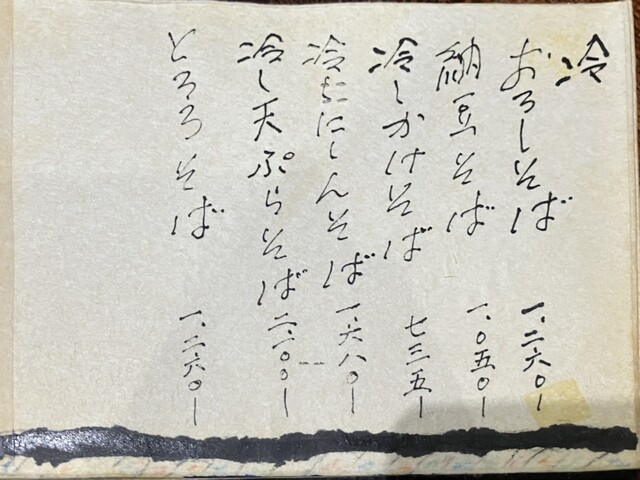 冷
おろしそば 一、二六〇ー
納豆そば 一、〇五〇ー
冷しかけそば 七三五ー
冷しにしんそば 一、六八〇ー
冷し天ぷらそば 二、一〇〇ー
とろろそば 一、二六〇ー